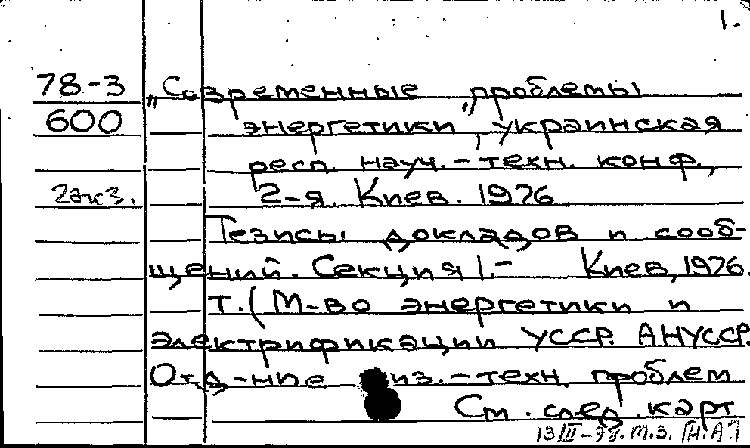 1.
78-3 „Современные проблемы
600 энергетики", украинская
респ. науч.-техн. конф.,
2экз. 2-я. Киев. 1976
Тезисы докладов и сооб-
щений. Секция 1.- Киев, 1976.
т. (М-во энергетики и
электрификации УССР. АНУССР.
Отд-ние физ.-техн. проблем
См. след. карт
13/III-78. М.З. [Н.А]